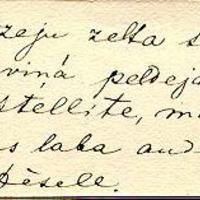 zeju zelta s
viņā peldēja
stellīte, m
s laba aud
Dēsele.